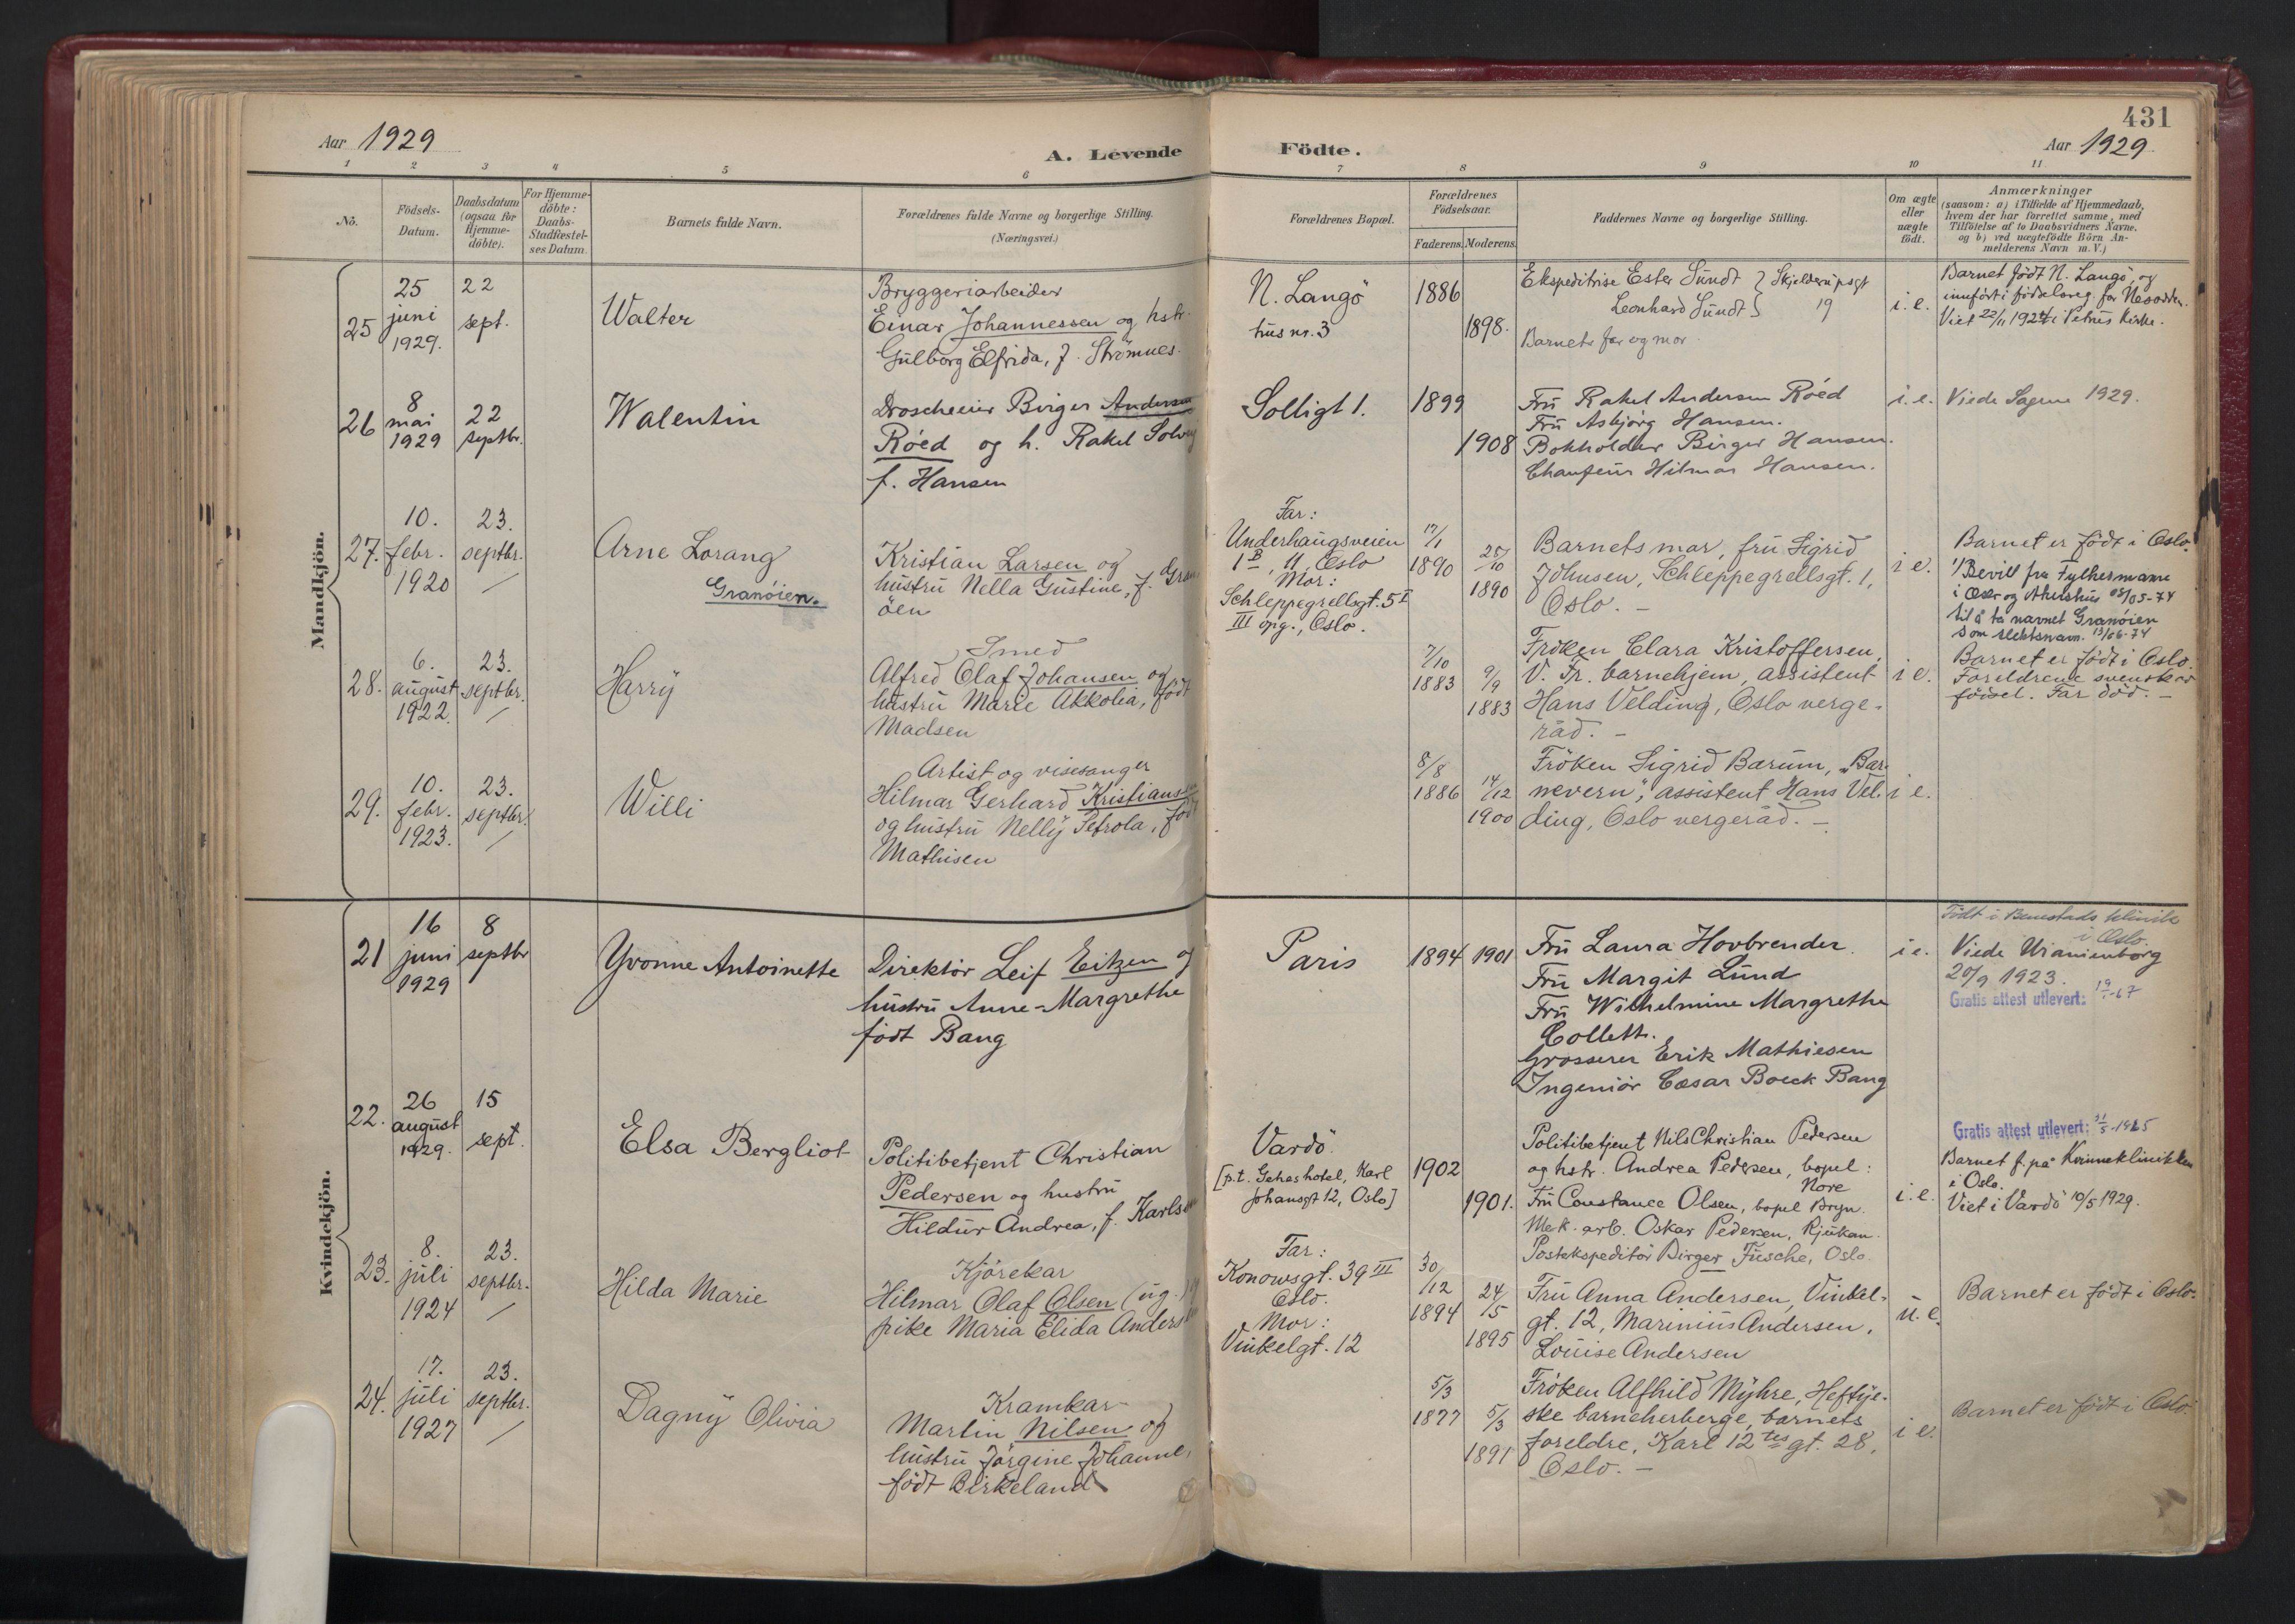 431
Aar 1929
A. Levende
Födte.
Aar 1929
1 2 3 4 5 6 7 8 9 10 11
Nô.
Födsels-
Datum.
Daabsdatum
(ogsaa for
Hjemme-
döbte).
For Hjemme-
döbte:
Daabs-
Stadfæstel-
ses Datum.
Barnets fulde Navn.
Forældrenes fulde Navne og borgerlige Stilling.
(Næringsvei.)
Forældrenes Bopæl.
Forældrenes
Födselsaar.
Faderens. Moderens.
Faddernes Navne og borgerlige Stilling.
Om ægte
eller
uægte
födt.
Anmærkninger
(saasom: a) i Tilfælde af Hjemmedaab,
hvem der har forrettet samme, med
Tilföielse af to Daabsvidners Navne.
og b) ved uægtefödte Börn An-
melderens Navn m. V.)
Mandkjön.
25
25
juni
1929.
22
sept.
Walter
Bryggeriarbeider
Einar Johannessen og hstr.
Gulborg Elfrida, f. Strömnes.
N. Langö
hus nr. 3
1886
1898.
Ekspeditrise Ester Sundt } Skjelderupsgt
Leonhard Sundt } 19
Barnets far og mor
i. e.
Barnet födt N. Langö, og
innfört i födselsreg. for Nesodden.
Viet 22/11 1924 i Petrus Kirke.
26
8
mai
1929
22
septbr.
Walentin
Droscheeier Birger Andersen
Röed og h. Rakel Solveig
f. Hansen
Solligt 1.
1899
1908
Fru Rakel Andersen Röed
Fru Asbjörg Hansen.
Bokholder Birger Hansen.
Chauffeur Hilmar Hansen.
i. e.
Viede Sagene 1929.
27.
10.
febr.
1920
23.
septbr.
Arne Lorang
Granöien.
Kristian Larsen og
hustru Nella Gustine, f. Gran-
öen
Far:
Underhaugsveien
1 B, 11, Oslo
Mor:
Schleppegrellsgt. 5 I
III opg., Oslo.
17/1
1890
25/10
1890
Barnets mor, fru Sigrid
Johnsen, Schleppegrellsgt. 1,
Oslo. –
i e.
Barnet er födt i Oslo.
1/ Bevill fra Fylkesmannen
i Oslo og Akershus 08/05-74
til å ta navnet Granöien
som slektsnavn. 13/06-74
28.
6.
august
1922.
23.
septbr.
Harry
Smed
Alfred Olaf Johansen og
hustru Marie Akkolia, födt
Madsen
7/10
1883
9/9
1883
Fröken Clara Kristoffersen,
V. Fr. barnehjem, assistent
Hans Velding, Oslo verge-
råd. –
i e.
Barnet er födt i Oslo.
Foreldrene svensk av
födsel. Far död. –
29.
10.
febr.
1923.
23.
septbr.
Willi
Artist og visesanger
Hilmar Gerhard Kristiansen
og hustru Nelly Sefrola, födt
Mathisen
8/8
1886
14/12
1900
Fröken Sigrid Barum, „Bar-
nevern“, assistent Hans Vel-
ding, Oslo vergeråd. –
i e.
Kvindekjön.
21
16
juni
1929
8
septbr
Yvonne Antoinette
Direktör Leif Eitzen og
hustru Anne-Margrethe
födt Bang
Paris
1894
1901
Fru Laura Hovbrender.
Fru Margit Lund
Fru Wilhelmine Margrethe
Collett.
Grosserer Erik Mathiesen
Ingeniör Cæsar Boeck Bang
i e.
Födt i Benestads klinik
i Oslo.
Viede Uranienborg
20/9 1923.
Gratis attest utlevert: 19/1-67
22.
26
august
1929.
15
sept.
Elsa Bergliot
Politibetjent Christian
Pedersen og hustru
Hildur Andrea, f. Karlsen
Vardö.
[p.t. Gehas hotel, Karl
Johansgt 12, Oslo]
1902
1901.
Politibetjent Nils Christian Pedersen
og hstr. Andrea Pedersen, bopel:
Nore
Fru Constance Olsen, bopel Bryn.
Mek. arb. Oskar Pedersen, Rjukan.
Postekspeditör Birger Fusche, Oslo
i. e.
Gratis attest utlevert: 31/5-1945
Barnet f. på Kvinneklinikken
i Oslo.
Viet i Vardö 10/5 1929.
23.
8.
juli
1924
23.
septbr.
Hilda Marie
Kjörekar
Hilmar Olaf Olsen (ug.) og
pike Maria Elida Andersen
Far:
Konowsgt. 39 III
Oslo.
Mor:
Vinkelgt. 12
30/12
1894
24/5
1895
Fru Anna Andersen, Vinkel-
gt. 12, Marinius Andersen,
Louise Andersen
u. e.
Barnet er födt i Oslo.
24.
17.
juli
1927
23.
septbr.
Dagny Olivia
Kramkar
Martin Nilsen og
hustru Jörgine Johanne,
födt Birkeland
5/3
1877
5/3
1891
Fröken Alfhild Myhre, Heftye-
ske barneherberge, barnets
foreldre, Karl 12tes gt. 28,
Oslo. –
i e.
Barnet er födt i Oslo.